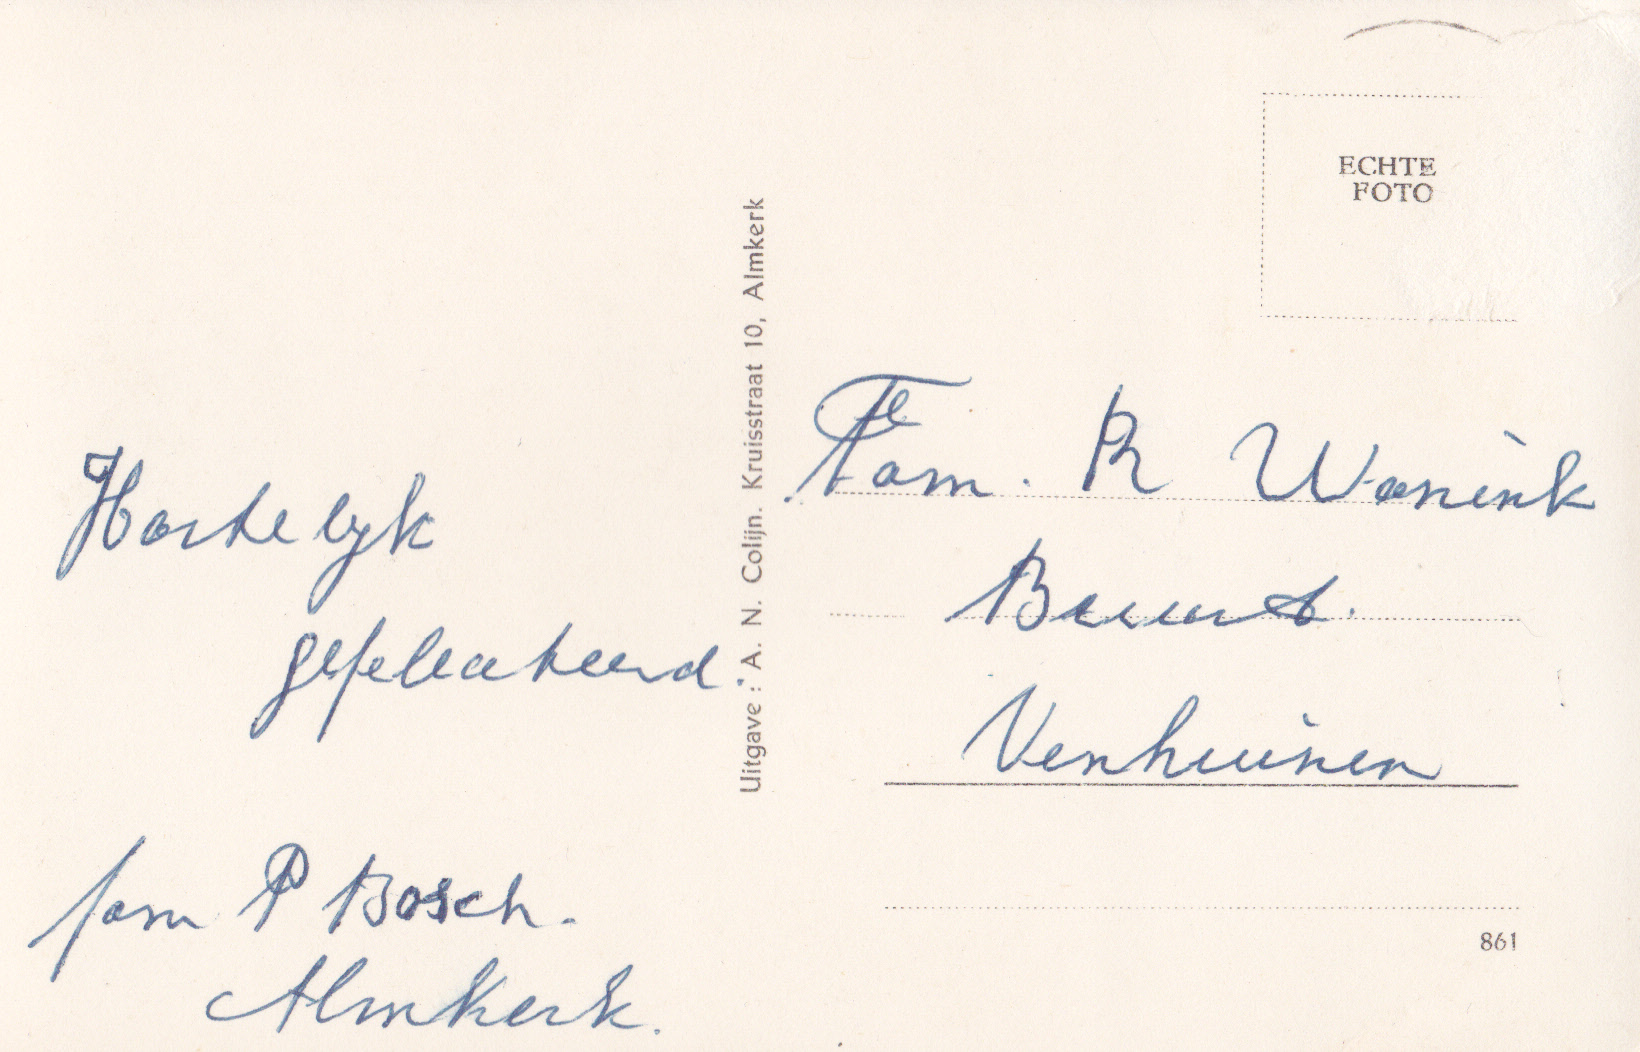 Hartelyk
gefeleciteerd.
fam P Bosch.
Almkerk.
Uitgave : A. N. Colijn. Kruisstraat 10, Almkerk
ECHTE
FOTO
Fam. R Wanink
Buurt.
Venhuizen
861